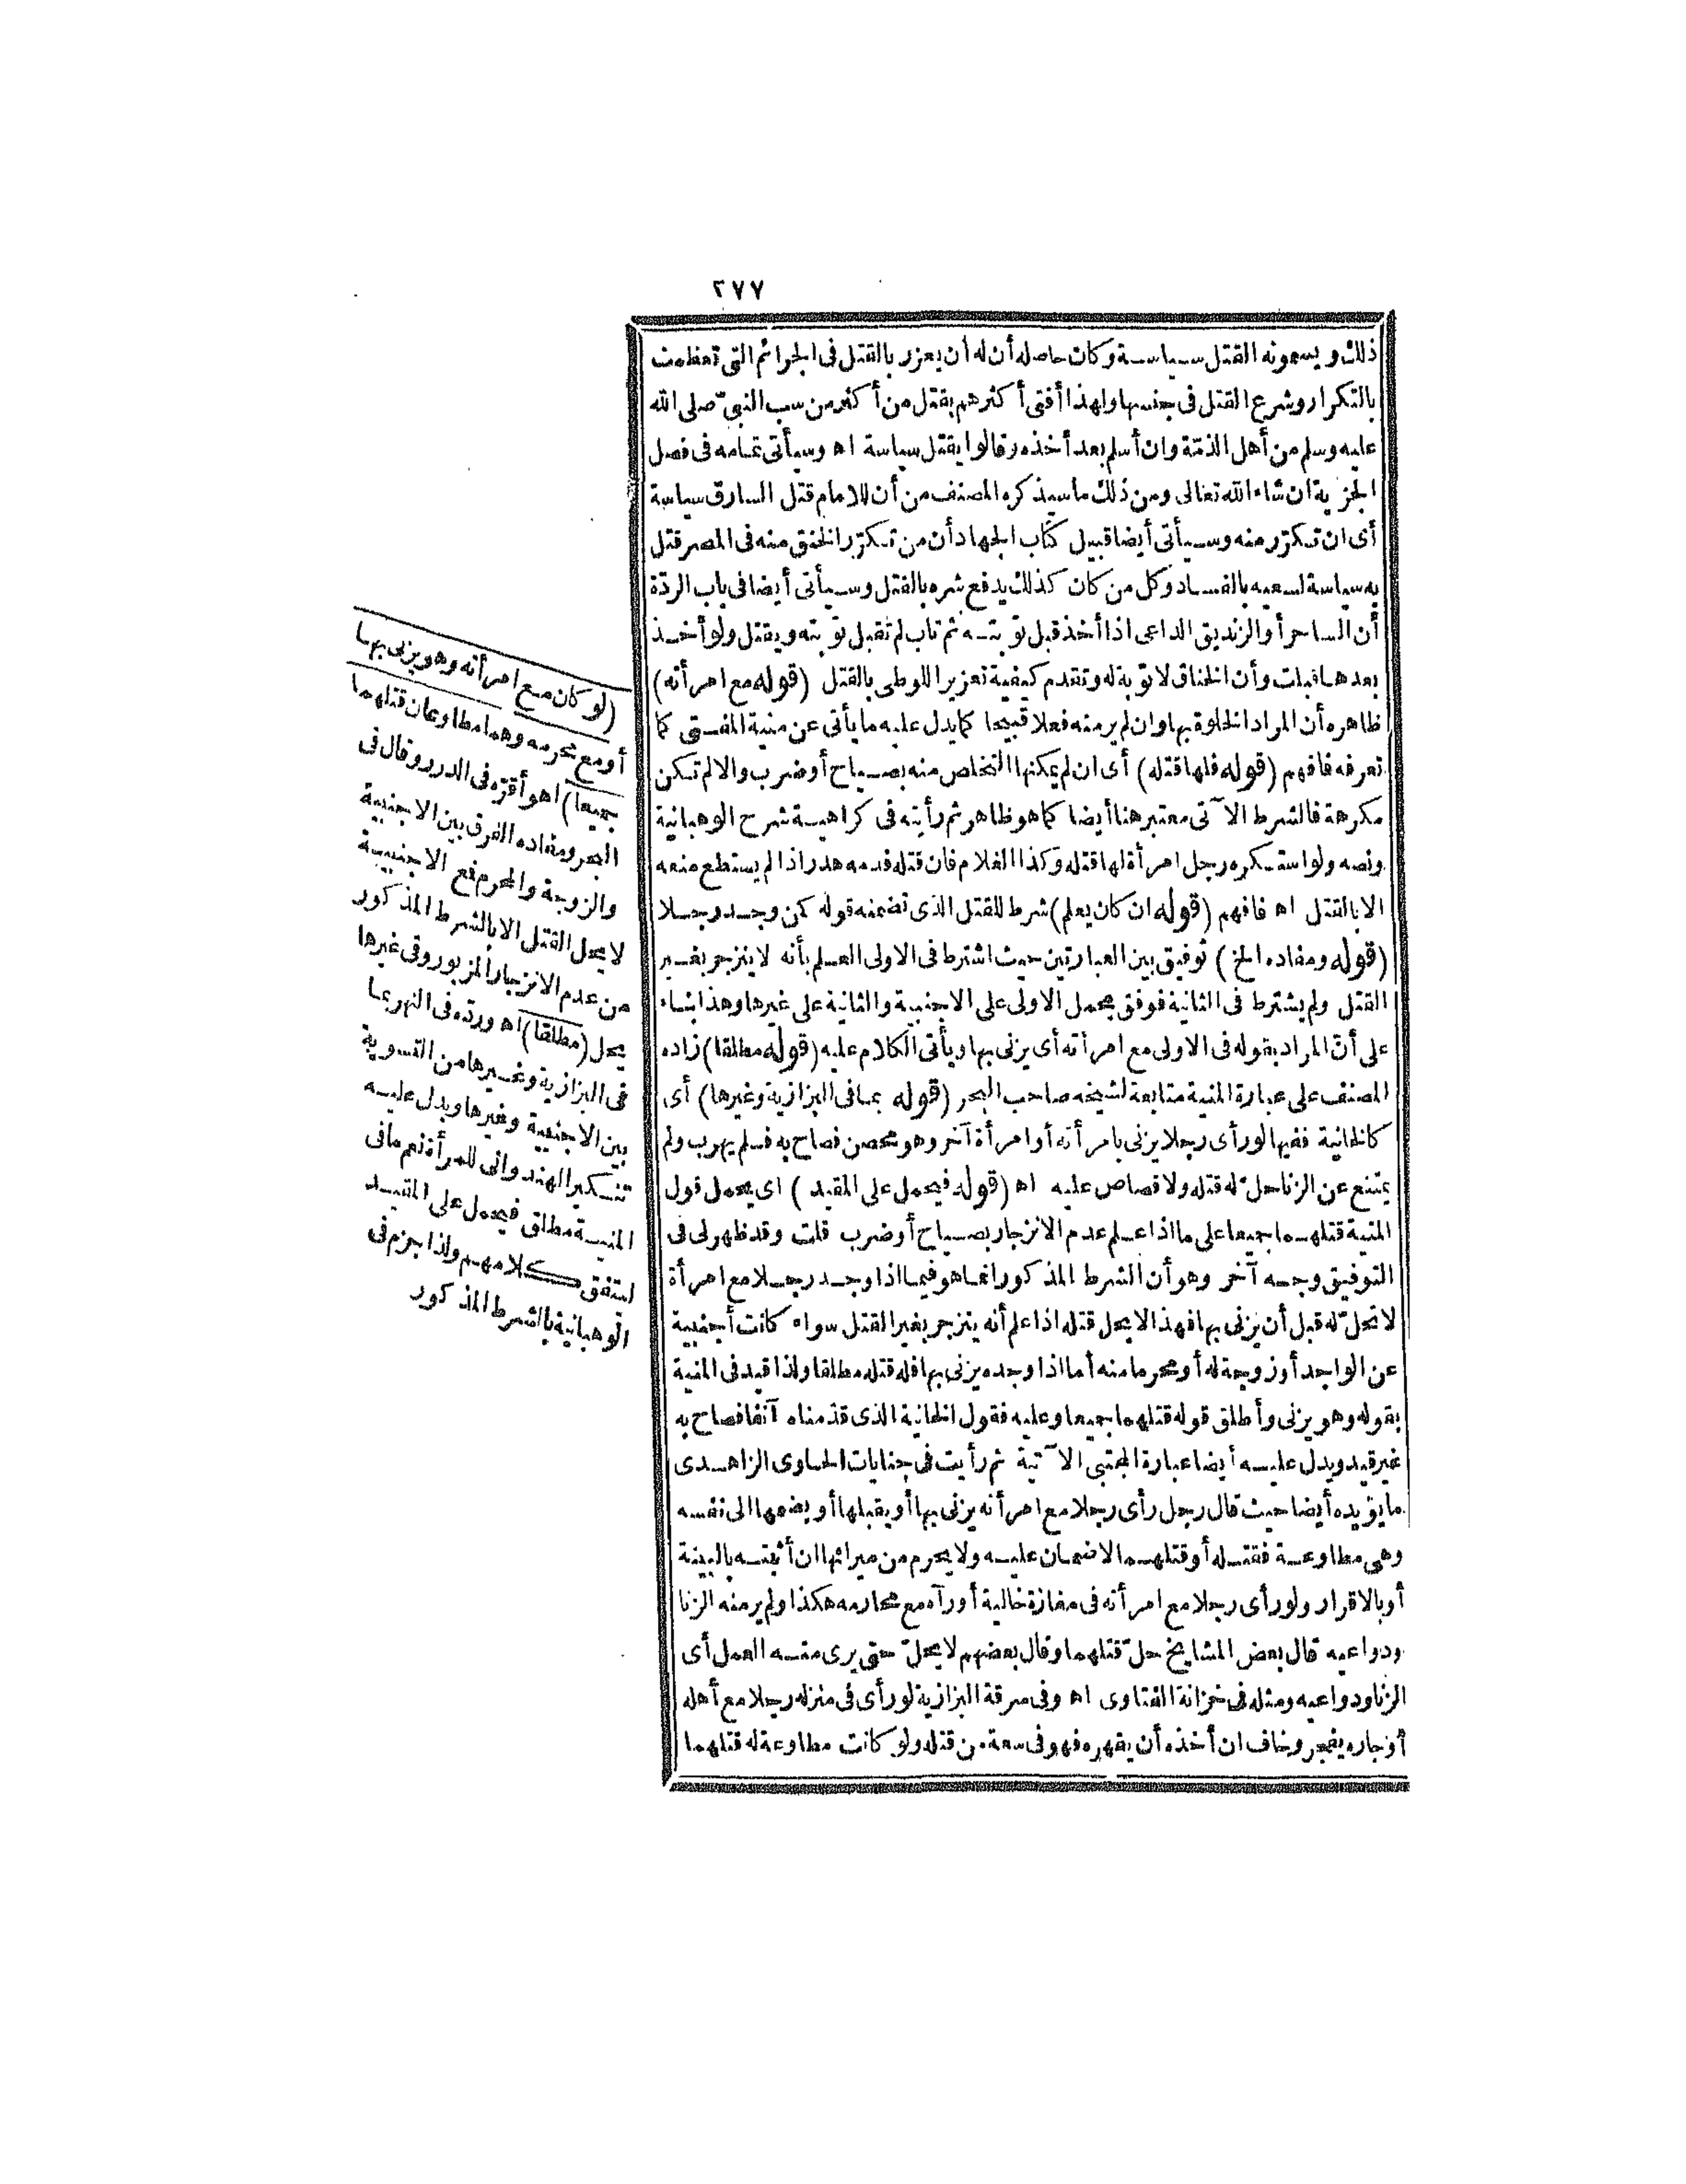 ٢٧٧
ذلك ويسمونه القتل سياسة وكان حاصله أن له أن يعزر بالقتل فى الجرائم التى تعظمت
بالتكرار وشرع القتل فى جنسها ولهذا أفتى أكثرهم بقتل من أكثر من سب النبىّ صلى الله
عليه وسلم من أهل الذمّة وان أسلم بعد أخذه وقالوا يقتل سياسة اه وسيأتى تمامه فى فصل
الجزية ان شاء الله تعالى ومن ذلك ماسيذكره المصنف من أن للامام قتل السارق سياسة
أى ان تكرّر منه وسيأتى أيضا قبيل كتاب الجهاد أن من تكرّر الخنق منه فى المصر قتل
به سياسة لسعيه بالفساد وكل من كان كذلك يدفع شره بالقتل وسيأتى أيضا فى باب الردّة
أن الساحر أو الزنديق الداعى اذا أخذ قبل توبته ثم تاب لم تقبل توبته ويقتل ولو أخذ
بعدها قبلت وأن الخناق لا توبة له وتقدم كيفية تعزير اللوطى بالقتل (قوله مع امرأته)
ظاهره أن المراد الخلوة بها وان لم ير منه فعلا قبيحا كما يدل عليه ما يأتى عن منية المفتى كما
تعرفه فافهم (قوله فلها قتله) أى ان لم يمكنها التخلص منه بصياح أو ضرب والا لم تكن
مكرهة فالشرط الآتى معتبر هنا أيضا كما هو ظاهر ثم رأيته فى كراهية شرح الوهبانية
ونصه ولو استكره رجل امرأة لها قتله وكذا الغلام فان قتله فدمه هدر اذا لم يستطع منعه
الا بالقتل اه فافهم (قوله ان كان يعلم) شرط للقتل الذى تضمنه قوله كمن وجد رجلا
(قوله ومفاده الخ) توفيق بين العبارتين حيث اشترط فى الاولى العلم بأنه لا ينزجر بغير
القتل ولم يشترط فى الثانية فوفق بحمل الاولى على الاجنبية والثانية على غيرها وهذا بناء
على أنّ المراد بقوله فى الاولى مع امرأته أى يزنى بها ويأتى الكلام عليه (قوله مطلقا) زاده
المصنف على عبارة المنية متابعة لشيخه صاحب البحر (قوله بما فى البزازية وغيرها) أى
كالخانية ففيها لو رأى رجلا يزنى بامرأته أو امرأة آخر وهو محصن فصاح به فلم يهرب ولم
يمتنع عن الزنا حلّ له قتله ولا قصاص عليه اه (قوله فيحمل على المقيد) اى يحمل قول
المنية قتلهما جميعا على ما اذا علم عدم الانزجار بصياح أو ضرب قلت وقد ظهر لى فى
التوفيق وجه آخر وهو أن الشرط المذكور انما هو فيما اذا وجد رجلا مع امرأة
لا تحلّ له قبل أن يزنى بها فهذا لا يحل قتله اذا علم أنه ينزجر بغير القتل سواء كانت أجنبية
عن الواجد أو زوجة له أو محرما منه أما اذا وجده يزنى بها فله قتله مطلقا ولذا قيد فى المنية
بقوله وهو يزنى وأطلق قوله قتلهما جميعا وعليه فقول الخانية الذى قدّمناه آنفا فصاح به
غير قيد ويدل عليه أيضا عبارة المجتبى الآتية ثم رأيت فى جنايات الحاوى الزاهدى
ما يؤيده أيضا حيث قال رجل رأى رجلا مع امرأته يزنى بها أو يقبلها أو يضمها الى نفسه
وهى مطاوعة فقتله أو قتلهما لا ضمان عليه ولا يحرم من ميراثها ان أثبته بالبينة
أو بالاقرار ولو رأى رجلا مع امرأته فى مفازة خالية أو رآه مع محارمه هكذا ولم ير منه الزنا
ودواعيه قال بعض المشايخ حلّ قتلهما وقال بعضهم لا يحلّ حتى يرى منه العمل أى
الزنا ودواعيه ومثله فى خزانة الفتاوى اه وفى سرقة البزازية لو رأى فى منزله رجلا مع أهله
أو جاره يفجر وخاف ان أخذه أن يقهره فهو فى سعة من قتله ولو كانت مطاوعة له قتلهما
(لو كان مع امرأته وهو يزنى بها
أو مع محرمه وهما مطاوعان قتلهما
جميعا) اه وأقرّه فى الدرر وقال فى
البحر ومفاده الفرق بين الاجنبية
والزوجة والمحرم فع الاجنبية
لا يحل القتل الا بالشرط المذكور
من عدم الانزجار المزبور وفى غيرها
يحل (مطلقا) اه وردّه فى النهر بما
فى البزازية وغيرها من التسوية
بين الاجنبية وغيرها ويدل عليه
تنكير الهندوانى للمرأة نعم ما فى
المنية مطلق فيحمل على المقيد
ليتفق كلامهم ولذا جزم فى
الوهبانية بالشرط المذكور